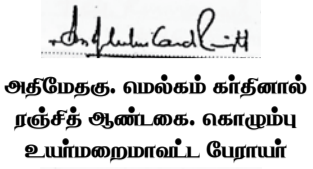 அதிமேதகு. மெல்கம் கர்தினால்
ரஞ்சித் ஆண்டகை. கொழும்பு
உயர்மறைமாவட்ட பேராயர்